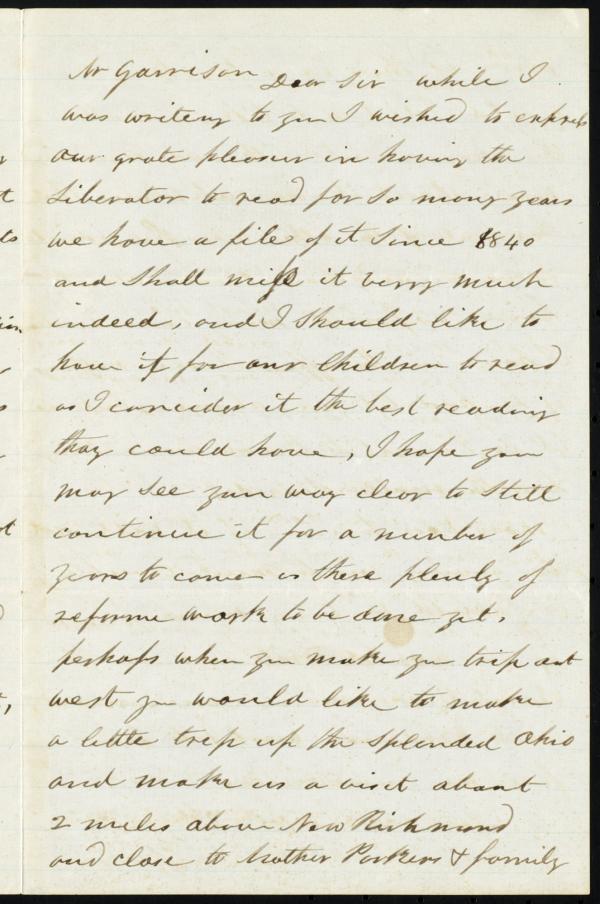 Mr Garrison Dear Sir while I
was writeng to you I wished to express
our grate pleasur in having the
Liberator to read for so many years
we have a file of it since 1840
and shall miss it verry much
indeed, and I should like to
have it for our children to read
as I concider it the best reading
thay could have, I hope you
may see your way clear to still
continue it for a number of
years to come as there plenty of
reforme work to be done yet.
perhaps when you make your trip out
west you would like to make
a little trip up the splended Ohio
and make us a visit about
2 miles above New Richmond
and close to Brother Parkers & family